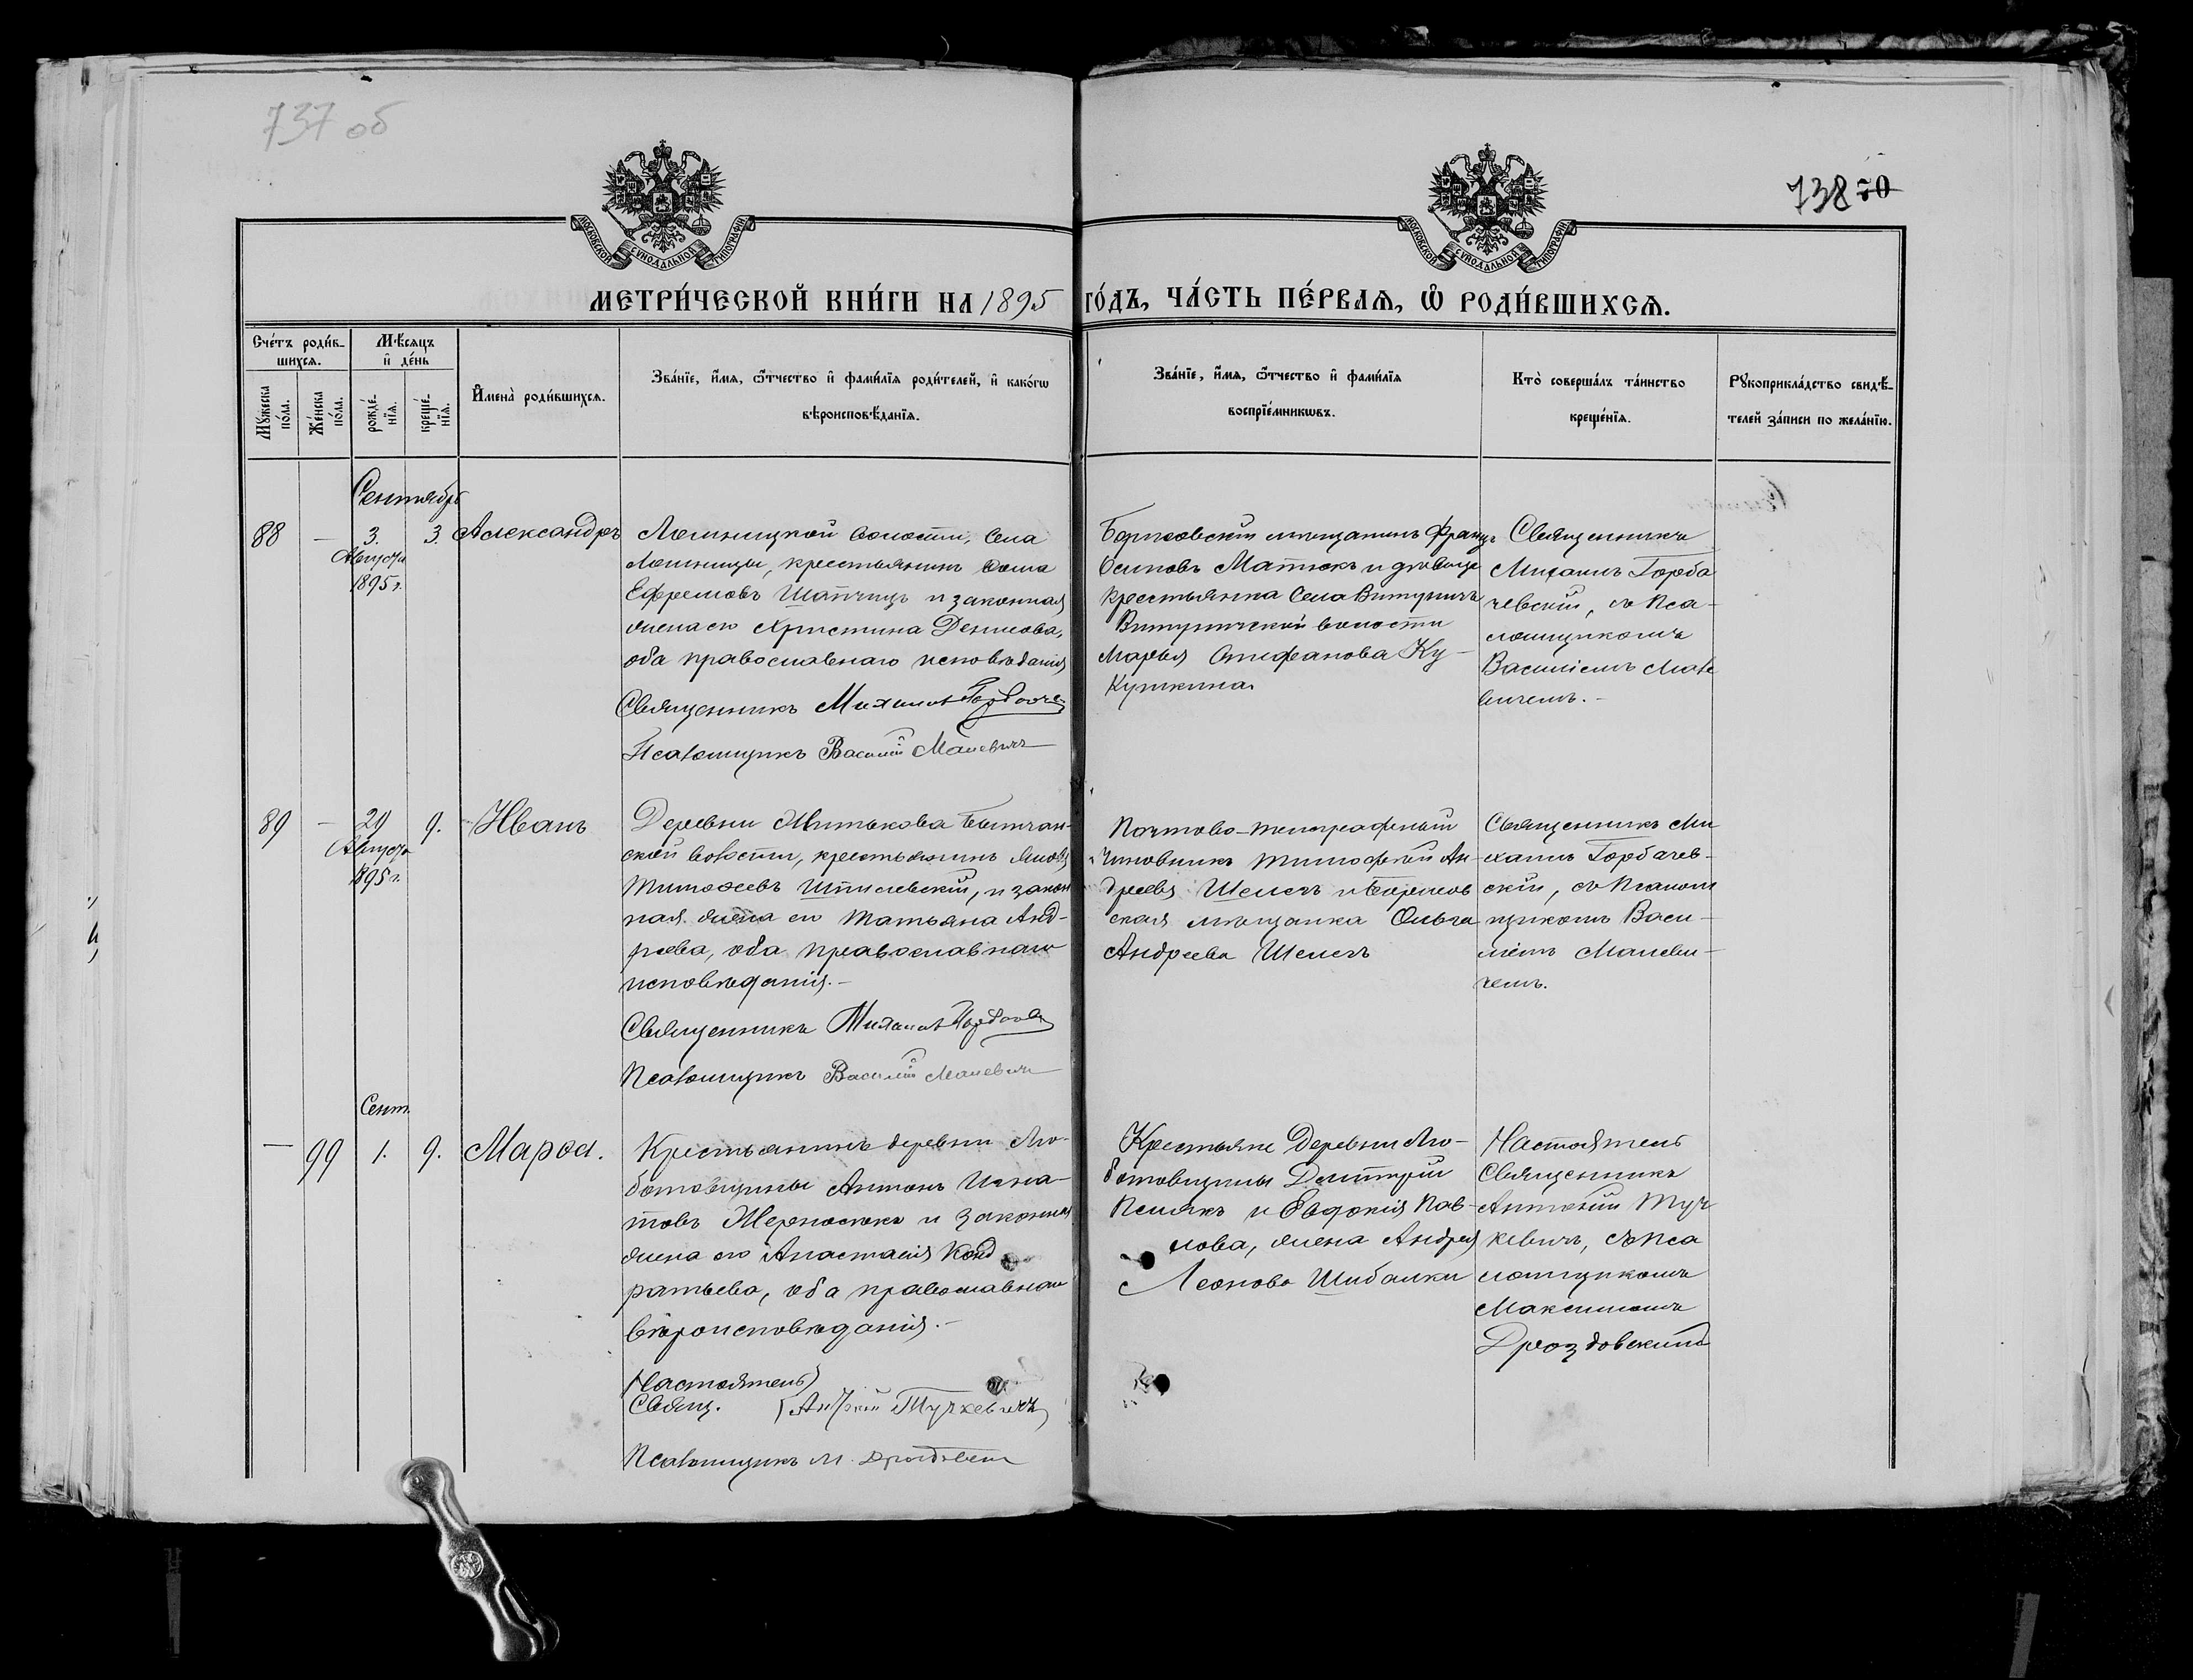 737 об
738 70
МОСКОВСКОЙ СѴНОДАЛЬНОЙ ТИПОГРАФІИ
МОСКОВСКОЙ СѴНОДАЛЬНОЙ ТИПОГРАФІИ
МЕТРИ́ЧЕСКОЙ КНИ́ГИ НА 1895 ГО́ДЪ, ЧА́СТЬ ПЕ́РВАѦ, Ѽ РОДИ́ВШИХСѦ.
Сче́тъ роди́в-
шихсѧ.
Мꙋ́жеска по́ла.
Же́нска по́ла.
Мѣ́сѧцъ
и҆ де́нь
рожде́-
нїѧ.
креще́-
нїѧ.
И҆мена̀ роди́вшихсѧ.
Зва́нїе, и҆́мѧ, ѻ҆́тчество и҆ фами́лїѧ роди́телей, и҆ како́гѡ
вѣроисповѣ́данїѧ.
Зва́нїе, и҆́мѧ, ѻ҆́тчество и҆ фами́лїѧ
воспрїе́мникѡвъ.
Кто̀ соверша́лъ та́инство
креще́нїѧ.
Рꙋкоприкла́дство свидѣ́-
телей за́писи по жела́нїю.
Сентябрь
88 — 3. 3. Александръ
Августа
1895 г.
Лошницкой волости, села
Лошницы, крестьянинъ Фома
Ефремовъ Шапчицъ и законная
жена его Христина Денисова,
оба православнаго исповѣданія
Священникъ Михаилъ
Псаломщикъ Василій Малевичъ
Борисовскій мѣщанинъ Францъ
Осиповъ Матюкъ и дѣвица
крестьянка села Витуничъ
Витуничской волости
Марья Стефанова Ку-
кушкина
Священникъ
Михаилъ Горба
чевскій, съ Пса-
ломщикомъ
Василіемъ Мале
вичемъ. —
89 — 29 9. Иванъ
Августа
1895 г.
Деревни Житькова
ской волости, крестьянинъ
Тимофеевъ Шпилевскій, и закон
ная жена его Татьяна Анд-
реева, оба православнаго
исповѣданія. —
Священникъ Михаилъ
Псаломщикъ Василій Малевичъ
Почтово-телеграфный
чиновникъ Тимофей Ан-
дреевъ Шелегъ и Борисов
ская мѣщанка Ольга
Андреева Шелегъ
Священникъ Ми
хаилъ Горбачев-
скій, съ Псалом
щикомъ Васи-
ліемъ Малеви-
чемъ.
Сент.
— 99 1. 9. Марѳа.
Крестьянинъ деревни Лю-
ботовщины Антонъ Игна-
товъ Жерносекъ и законная
жена его Анастасія Конд
ратьева, оба православнаго
вѣроисповѣданія. —
Настоятель
Свящ. Антоній Тучкевичъ
Псаломщикъ М. Дроздовскій
Крестьяне деревни Лю-
ботовщины Дмитрій
и Евдокія Пав-
лова, жена Андрея
Леонова Шибалки
Настоятель
Священникъ
Антоній Туч
кевичъ, съ Пса
ломщикомъ
Максимомъ
Дроздовскимъ